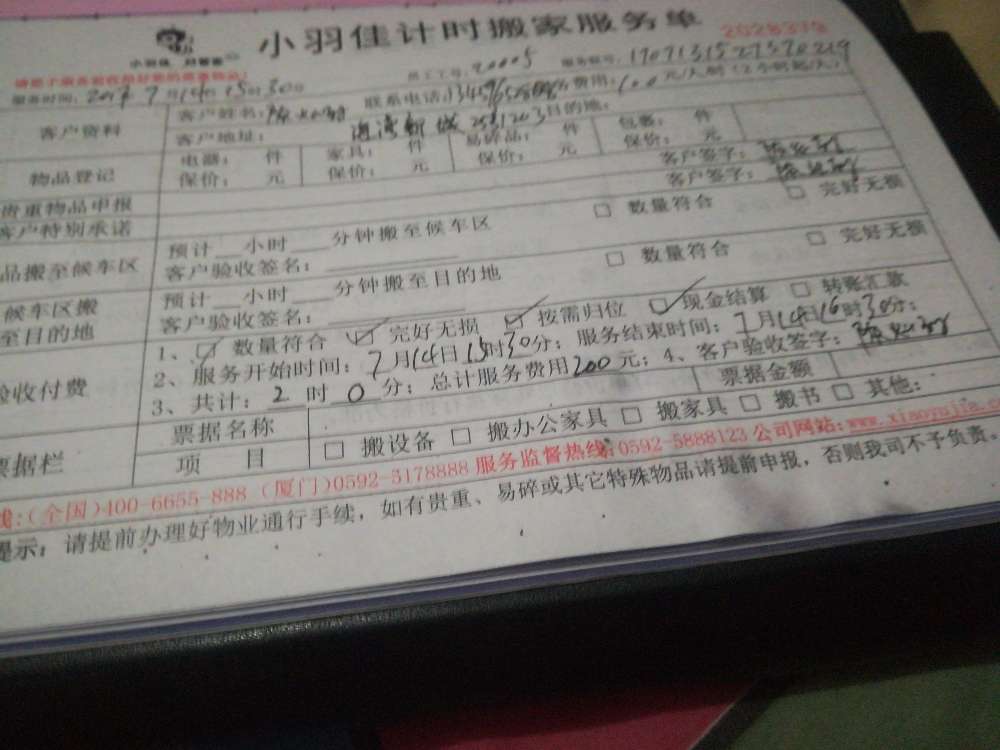 小羽佳计时搬家服务单
2028379
小羽佳
员工工号：20005 服务账号：1707131527570219
服务时间：2017年7月14日15时30分 联系电话： 费用：100元/人.时（2小时起/人）
客户资料 客户姓名：
客户地址： 目的地：
物品登记 电器： 件 家具： 件 易碎品： 件 包裹： 件
保价： 元 保价： 元 保价： 元 保价： 元
贵重物品申报 客户签字：
客户特别承诺 客户签字：
品搬至候车区 预计__小时___分钟搬至候车区 □ 数量符合 □ 完好无损
客户验收签名：
候车区搬至目的地 预计__小时___分钟搬至目的地 □ 数量符合 □ 完好无损
客户验收签名：
验收付费 1、☑ 数量符合 ☑ 完好无损 ☑ 按需归位 ☑ 现金结算 □ 转账汇款
2、服务开始时间：7月14日15时30分；服务结束时间：7月14日16时30分；
3、共计：2时0分；总计服务费用200元；4、客户验收签字：
票据栏 票据名称 票据金额
项目 □ 搬设备 □ 搬办公家具 □ 搬家具 □ 搬书 □ 其他：
线:(全国)400-6655-888 (厦门)0592-5178888 服务监督热线:0592-5888123 公司网站:www.xiaoyujia.c
提示：请提前办理好物业通行手续，如有贵重、易碎或其它特殊物品请提前申报，否则我司不予负责。